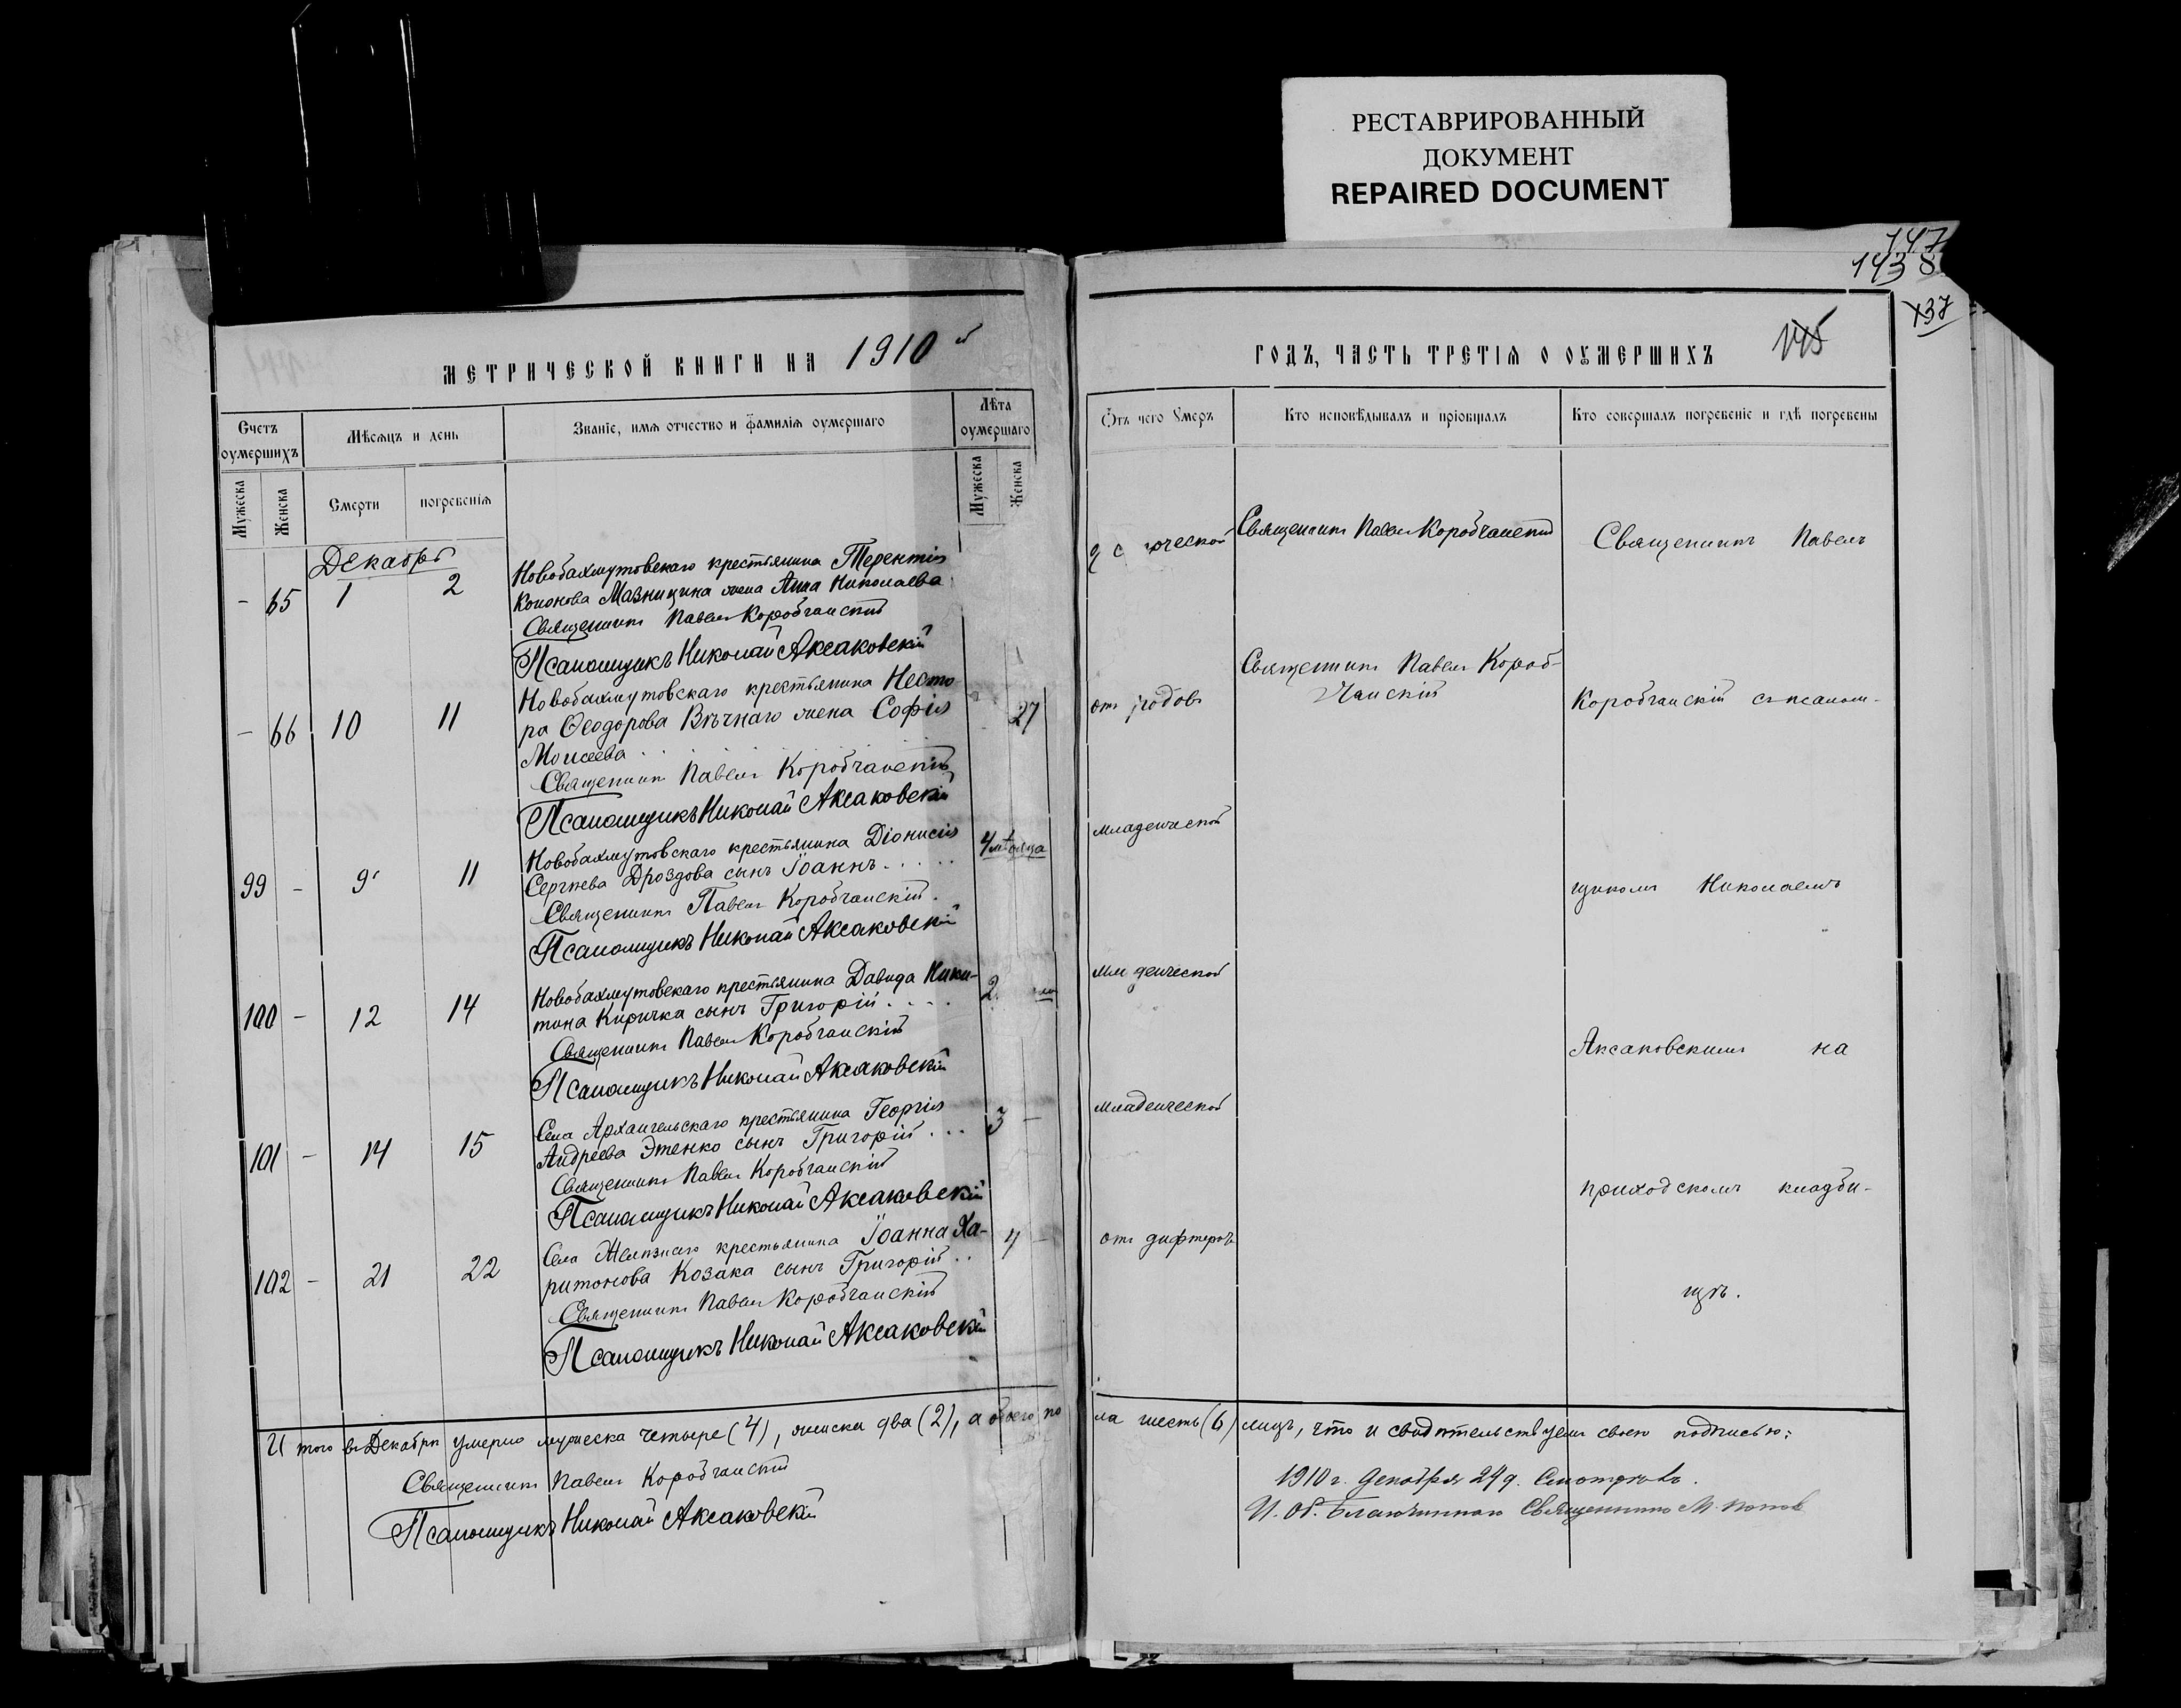 РЕСТАВРИРОВАННЫЙ
ДОКУМЕНТ
REPAIRED DOCUMENT
147
1438
137
МЕТРИЧЕСКОЙ КНИГИ НА 1910 й
Счетъ оумершихъ
Мѣсяцъ и день
Званіе, имя отчество и фамилія оумершаго
Лѣта оумершаго
Мужеска
Женска
Смерти
погребенія
Мужеска
Женска
Декабрь
- 65 1 2 Новобахмутовскаго крестьянина Терентія
Кононова Мазницина жена Анна Николаева
Священникъ Павелъ Коробчанскій
Псаломщикъ Николай Аксаковскій
- 66 10 11 Новобахмутовскаго крестьянина Несто
ра Ѳеодорова Вѣчнаго жена Софія 27
Моисеева
Священникъ Павелъ Коробчанскій
Псаломщикъ Николай Аксаковскій
99 - 9 11 Новобахмутовскаго крестьянина Діонисія 4 мѣсяца
Сергѣева Дроздова сынъ Іоаннъ
Священникъ Павелъ Коробчанскій
Псаломщикъ Николай Аксаковскій
100 - 12 14 Новобахмутовскаго крестьянина Давида Ники- 2
тина Киричка сынъ Григорій
Священникъ Павелъ Коробчанскій
Псаломщикъ Николай Аксаковскій
101 - 14 15 Села Архангельскаго крестьянина Георгія 3 -
Андреева Этенко сынъ Григорій
Священникъ Павелъ Коробчанскій
Псаломщикъ Николай Аксаковскій
102 - 21 22 Села Желѣзнаго крестьянина Іоанна Ха- 4 -
ритонова Козака сынъ Григорій
Священникъ Павелъ Коробчанскій
Псаломщикъ Николай Аксаковскій
И того въ Декабрѣ умерло мужеска четыре (4), женска два (2), а обоего по
Священникъ Павелъ Коробчанскій
Псаломщикъ Николай Аксаковскій
ГОДЪ, ЧАСТЬ ТРЕТІЯ О ОУМЕРШИХЪ
145
Отъ чего умеръ
Кто исповѣдывалъ и пріобщалъ
Кто совершалъ погребеніе и гдѣ погребены
Священникъ Павелъ Коробчанскій
Священникъ Павелъ
Священникъ Павелъ Короб-
чанскій
отъ родовъ
Коробчанскій съ псалом-
младенческой
щикомъ Николаемъ
Аксаковскимъ на
младенческой
приходскомъ кладби-
отъ дифтерита
щѣ.
ла шесть (6) лицъ, что и свидѣтельствуемъ своею подписью:
1910 г. Декабря 29 д. Смотрѣлъ.
И. об. Благочиннаго Священникъ М. Поповъ